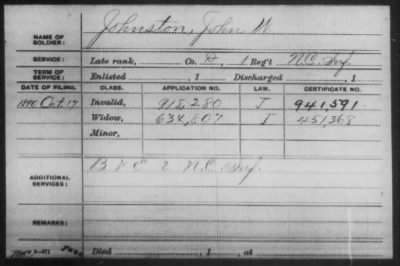 Johnston, John W.
NAME OF SOLDIER:
SERVICE: Late rank, Co. D, 1 Reg't N.C. Inf.
TERM OF SERVICE: Enlisted , 1 Discharged , 1
DATE OF FILING. CLASS. APPLICATION NO. LAW. CERTIFICATE NO.
1890 Oct. 17 Invalid, 918,280 J 941,591
Widow, 634,807 I 451,368
Minor,
ADDITIONAL SERVICES: 2 N.C. Inf.
REMARKS:
Died , 1 , at